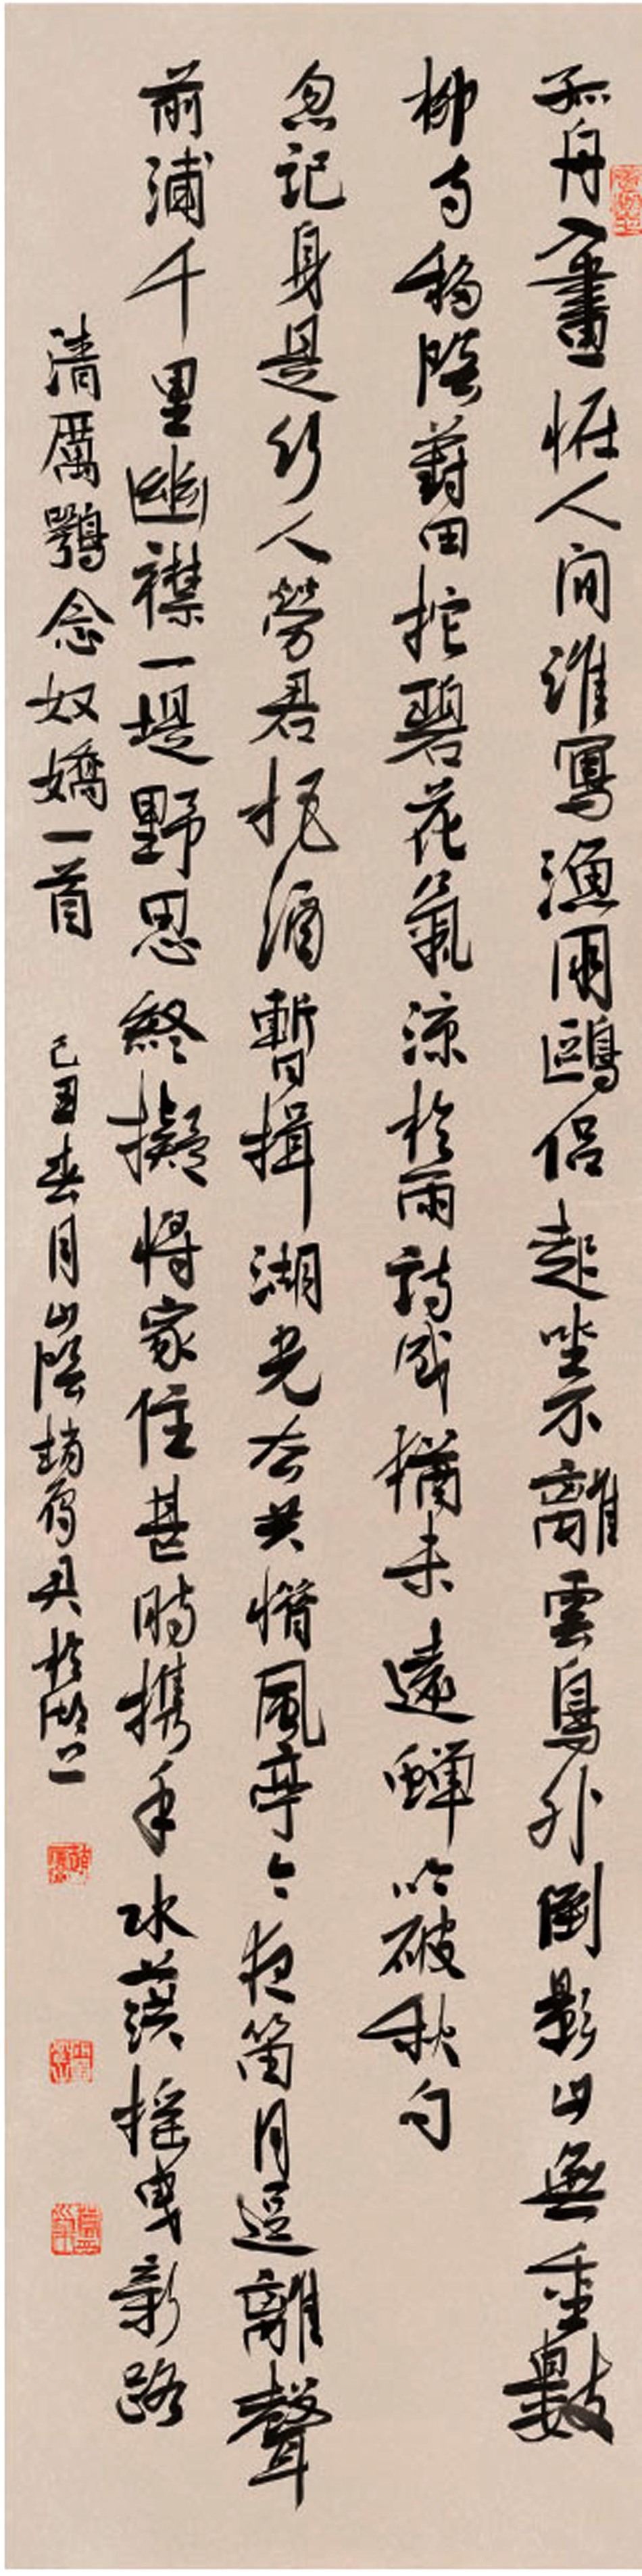 孤舟入畫怪人間誰寫漁朋鷗侶起坐不離雲鳥外倒影山無重數
柳寺移陰葑田拖碧花氣涼於雨詩成猶未遠蟬吟破秋句
忽記身是行人勞君把酒暫揖湖光去共惜風亭今夜笛月逗離聲
前浦千里幽襟一堤野思終擬將家住甚時攜手水葓搖曳新路
清厲鶚念奴嬌一首
己丑春月山陰趙雁君於湖上